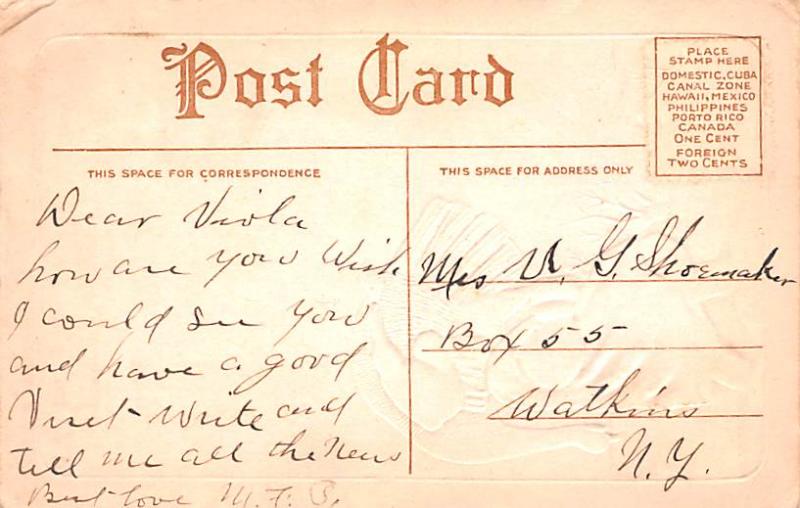 Post Card
PLACE
STAMP HERE
DOMESTIC, CUBA
CANAL ZONE
HAWAII, MEXICO
PHILIPPINES
PORTO RICO
CANADA
ONE CENT
FOREIGN
TWO CENTS
THIS SPACE FOR CORRESPONDENCE
Dear Viola
how are you Wish
I could see you
and have a good
Visit Write and
tell me all the News
Best love M. F.
THIS SPACE FOR ADDRESS ONLY
Mrs V. G. Shoemaker
Box 55
Watkins
N.Y.